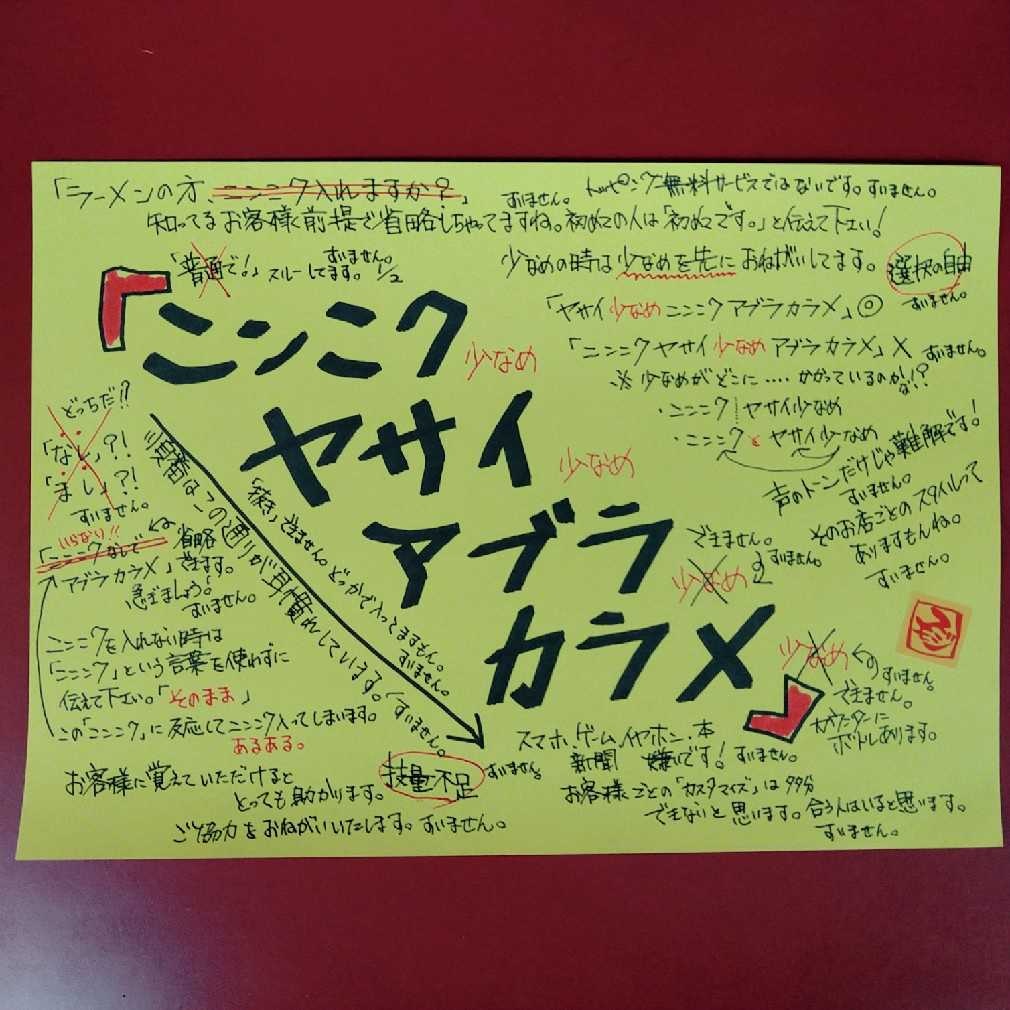 「ラーメンの方、ニンニク入れますか?」
すいません。
トッピング無料サービスではないです。すいません。
知ってるお客様前提で省略しちゃってますね。初めての人は「初めてです。」と伝えて下さい!
「普通で!」スルーしてます。1/2
すいません。
少なめの時は少なめを先におねがいしてます。
選択の自由
すいません。
「ヤサイ少なめニンニクアブラカラメ」◎
「ニンニクヤサイ少なめアブラカラメ」×
すいません。
※少なめがどこに‥‥かかっているのかな!?
・ニンニク ヤサイ少なめ
・ニンニクとヤサイ少なめ
声のトーンだけじゃ難解です!
すいません。
そのお店ごとのスタイルって
ありますもんね。
すいません。
「ニンニク
少なめ
ヤサイ
少なめ
アブラ
少なめ
できません。
すいません。
カラメ」
少なめ
すいません。
できません。
カウンターに
ボトルあります。
順番はこの通りが耳慣れしています。「すいません。
「抜き」できません。どっかで入っとますもん。
すいません。
どっちだ!!
「なし」?!
「まし」?!
すいません。
いらない!!
「ニンニクなしで
省略
アブラカラメ」できます。
急ぎましょう!
すいません。
ニンニクを入れない時は
「ニンニク」という言葉を使わずに
伝えて下さい。「そのまま」
この「ニンニク」に反応してニンニク入ってしまいます。
あるある。
お客様に覚えていただけると
とっても助かります。
技量不足
すいません。
ご協力をおねがいいたします。すいません。
スマホ、ゲーム、イヤホン、本
新聞 嫌いです! すいません。
お客様ごとの「カスタマイズ」は99%
できないと思います。合う人はいると思います。
すいません。